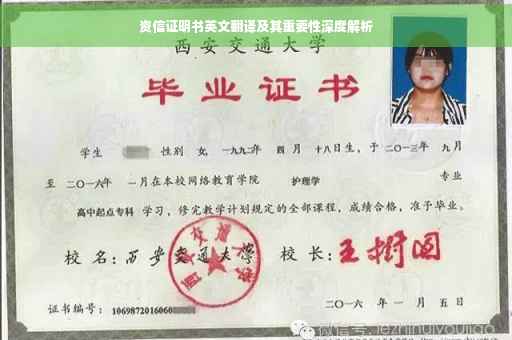 资信证明书英文翻译及其重要性深度解析
西安交通大学
毕业证书
学生 性别 女,一九九二年 四 月 十八日生,于 二〇一三年 九月
至 二〇一六年 一月在本校网络教育学院 护理学 专业
高中起点专科 学习,修完教学计划规定的全部课程,成绩合格,准予毕业。
校 名:西安交通大学 校 长:王树国
证书编号:1069872016060
二〇一六 年 一 月 五 日
微信号:jezhihuiyoujiao